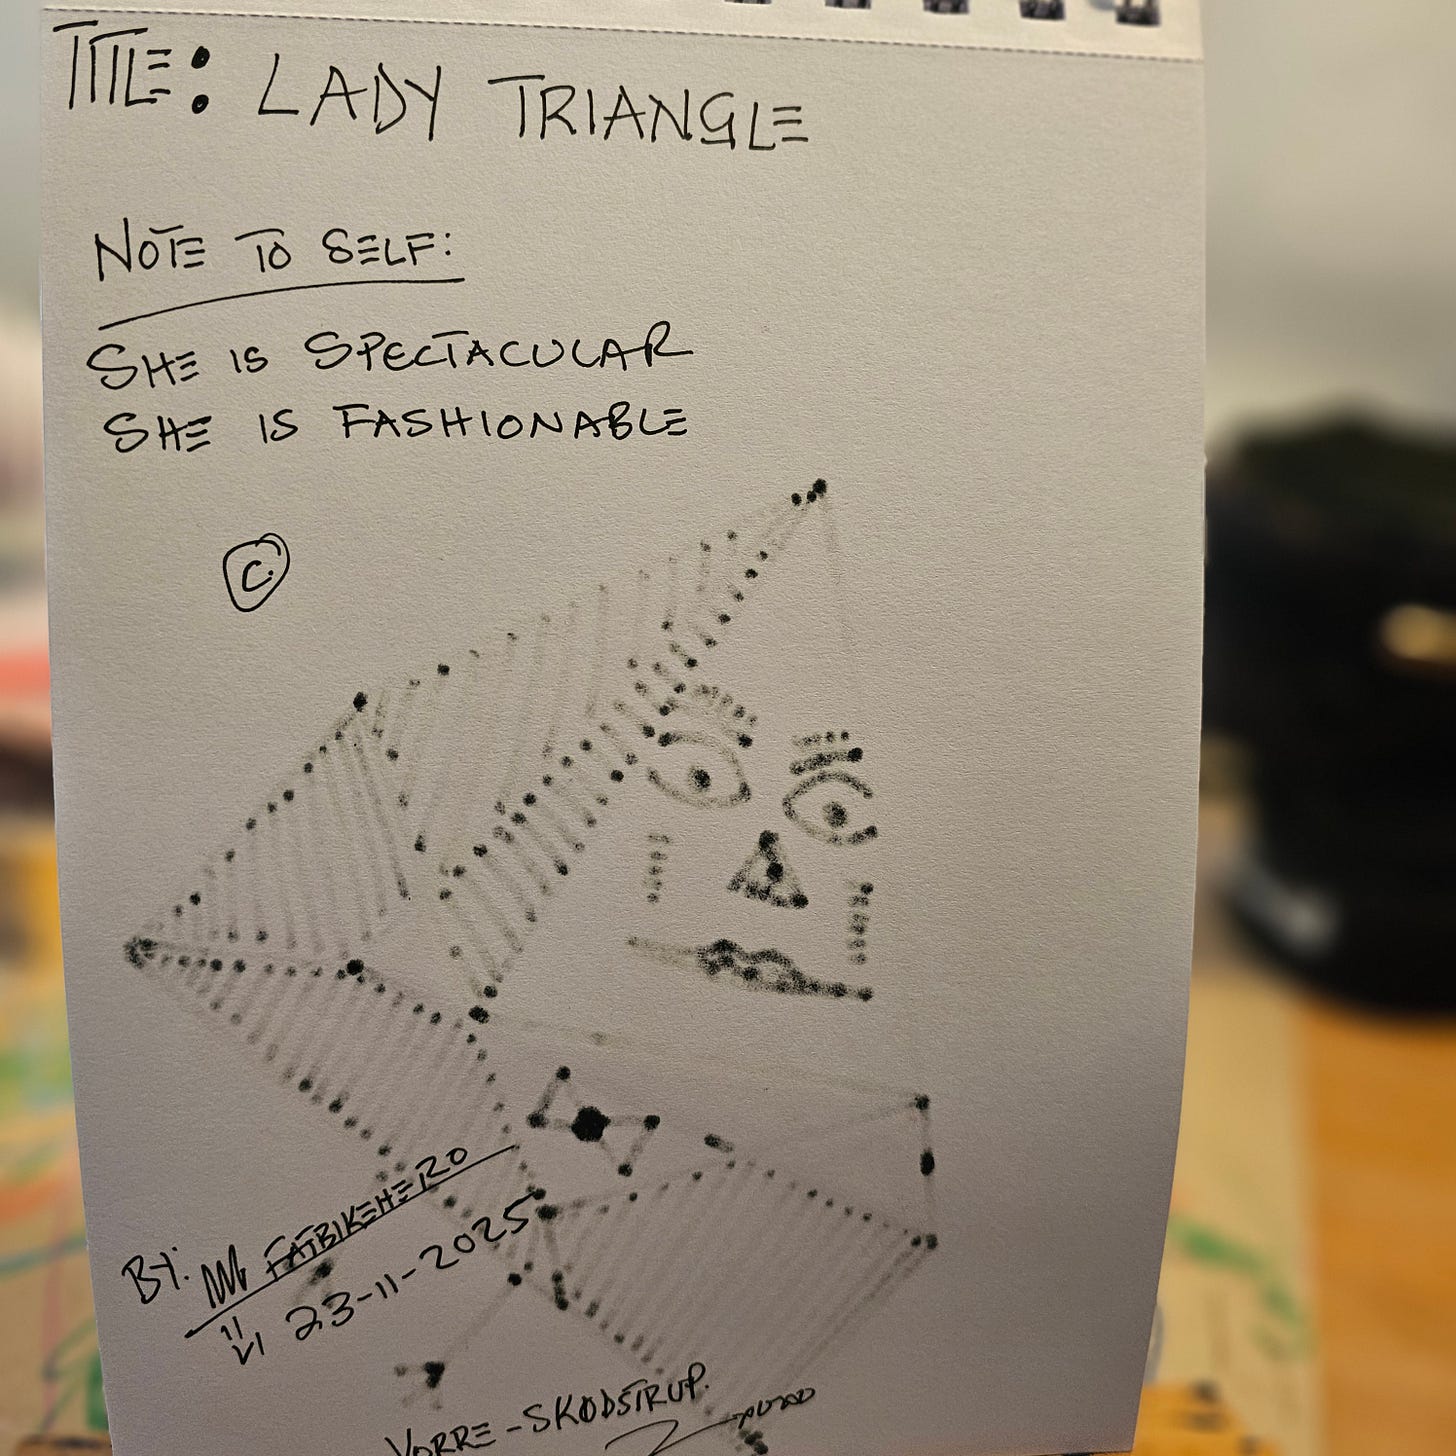 TITLE: LADY TRIANGLE
NOTE TO SELF:
SHE IS SPECTACULAR
SHE IS FASHIONABLE
C.
BY: FATBIKEHERO
23-11-2025
VORRE-SKØDSTRUP.